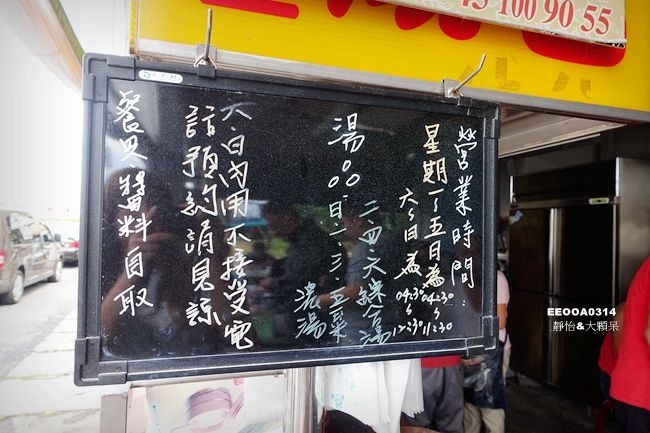 45 100 90 55
營業時間：
星期一～五日為 04:30～11:30
六、日為 04:30～12:30
湯。。二、四、六綜合湯
日、一、三、五菜
濃湯
六、日內用不接受電
話預約請見諒
餐具、醬料自取
EEOOA0314
靜怡&大顆呆